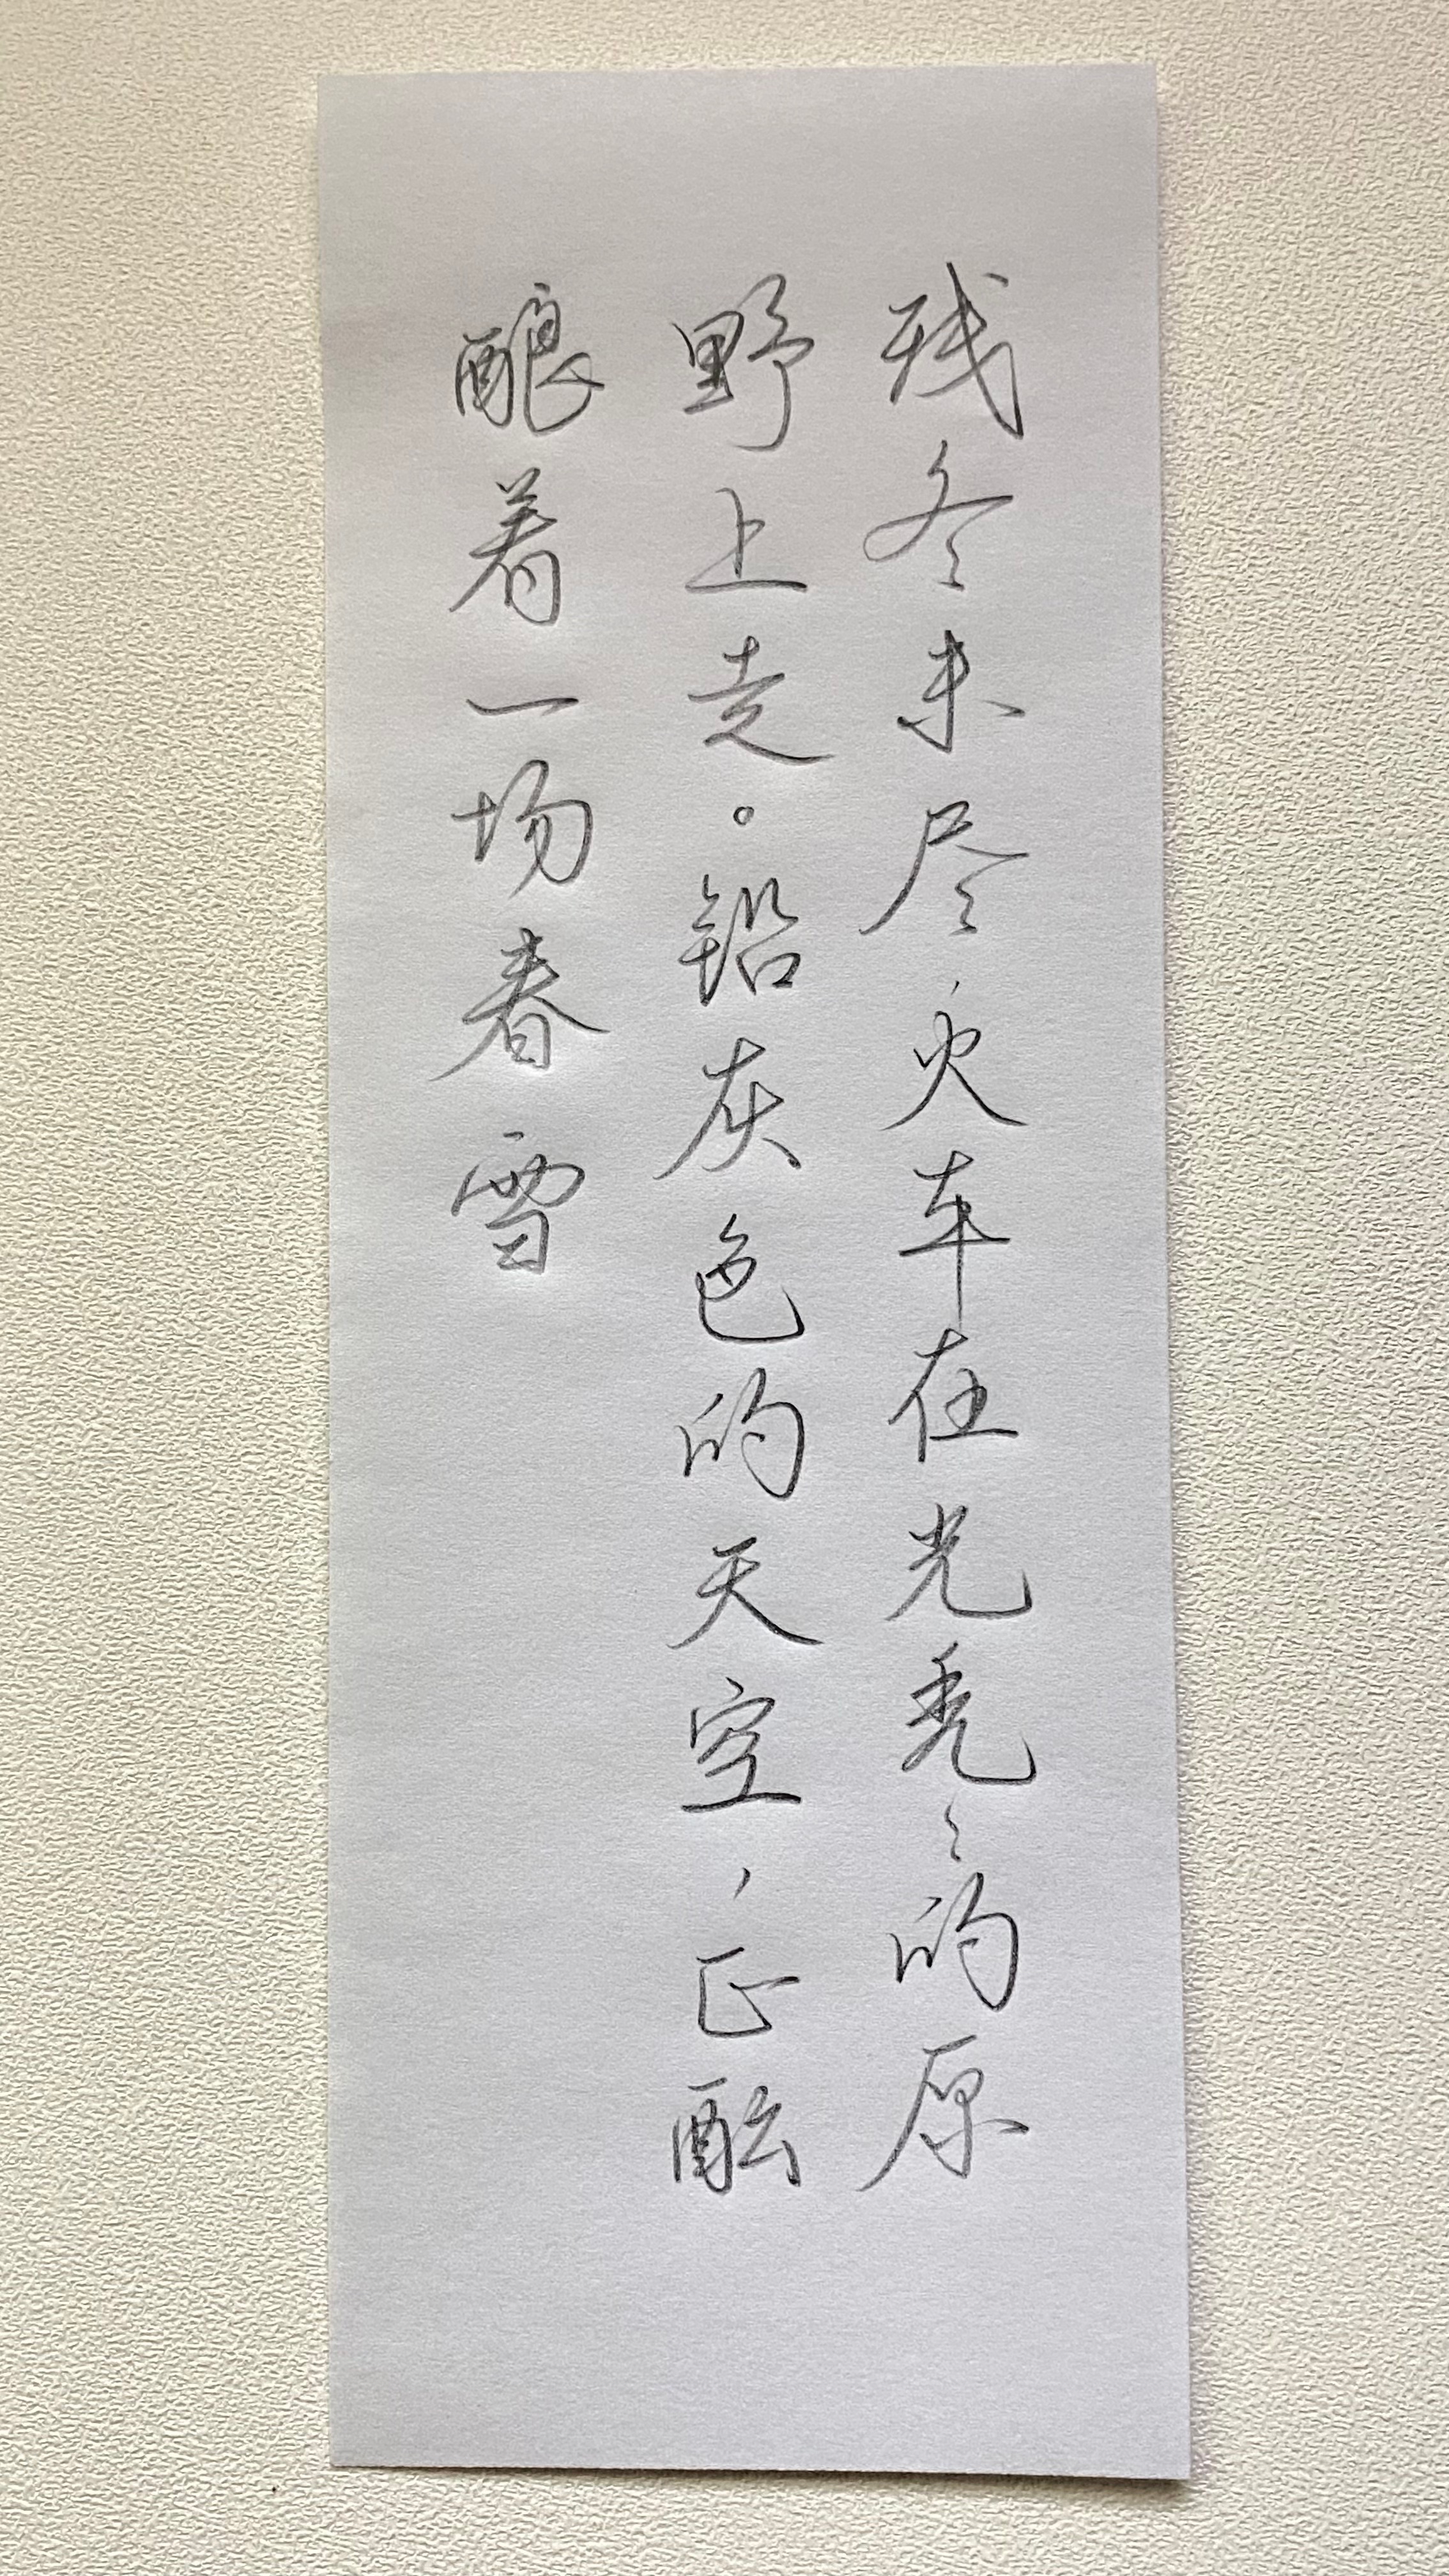 残冬未尽，火车在光秃〻的原
野上走。铅灰色的天空，正酝
酿着一场春雪